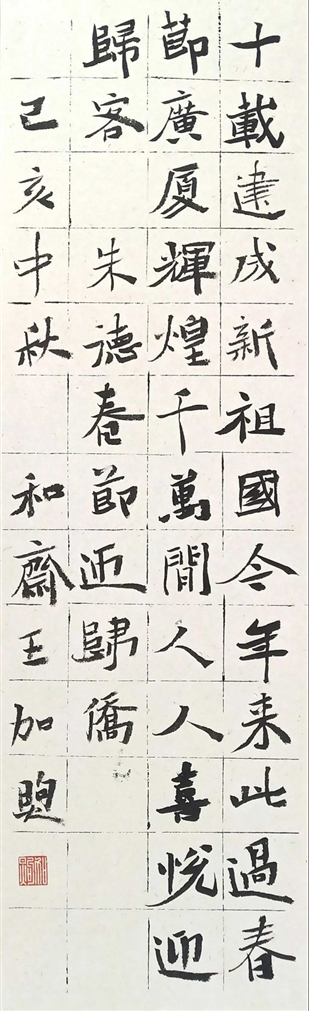 十載建成新祖國今年来此過春
節廣厦輝煌千萬間人人喜悦迎
歸客 朱德春節迎歸僑
己亥中秋 和齋王加煦